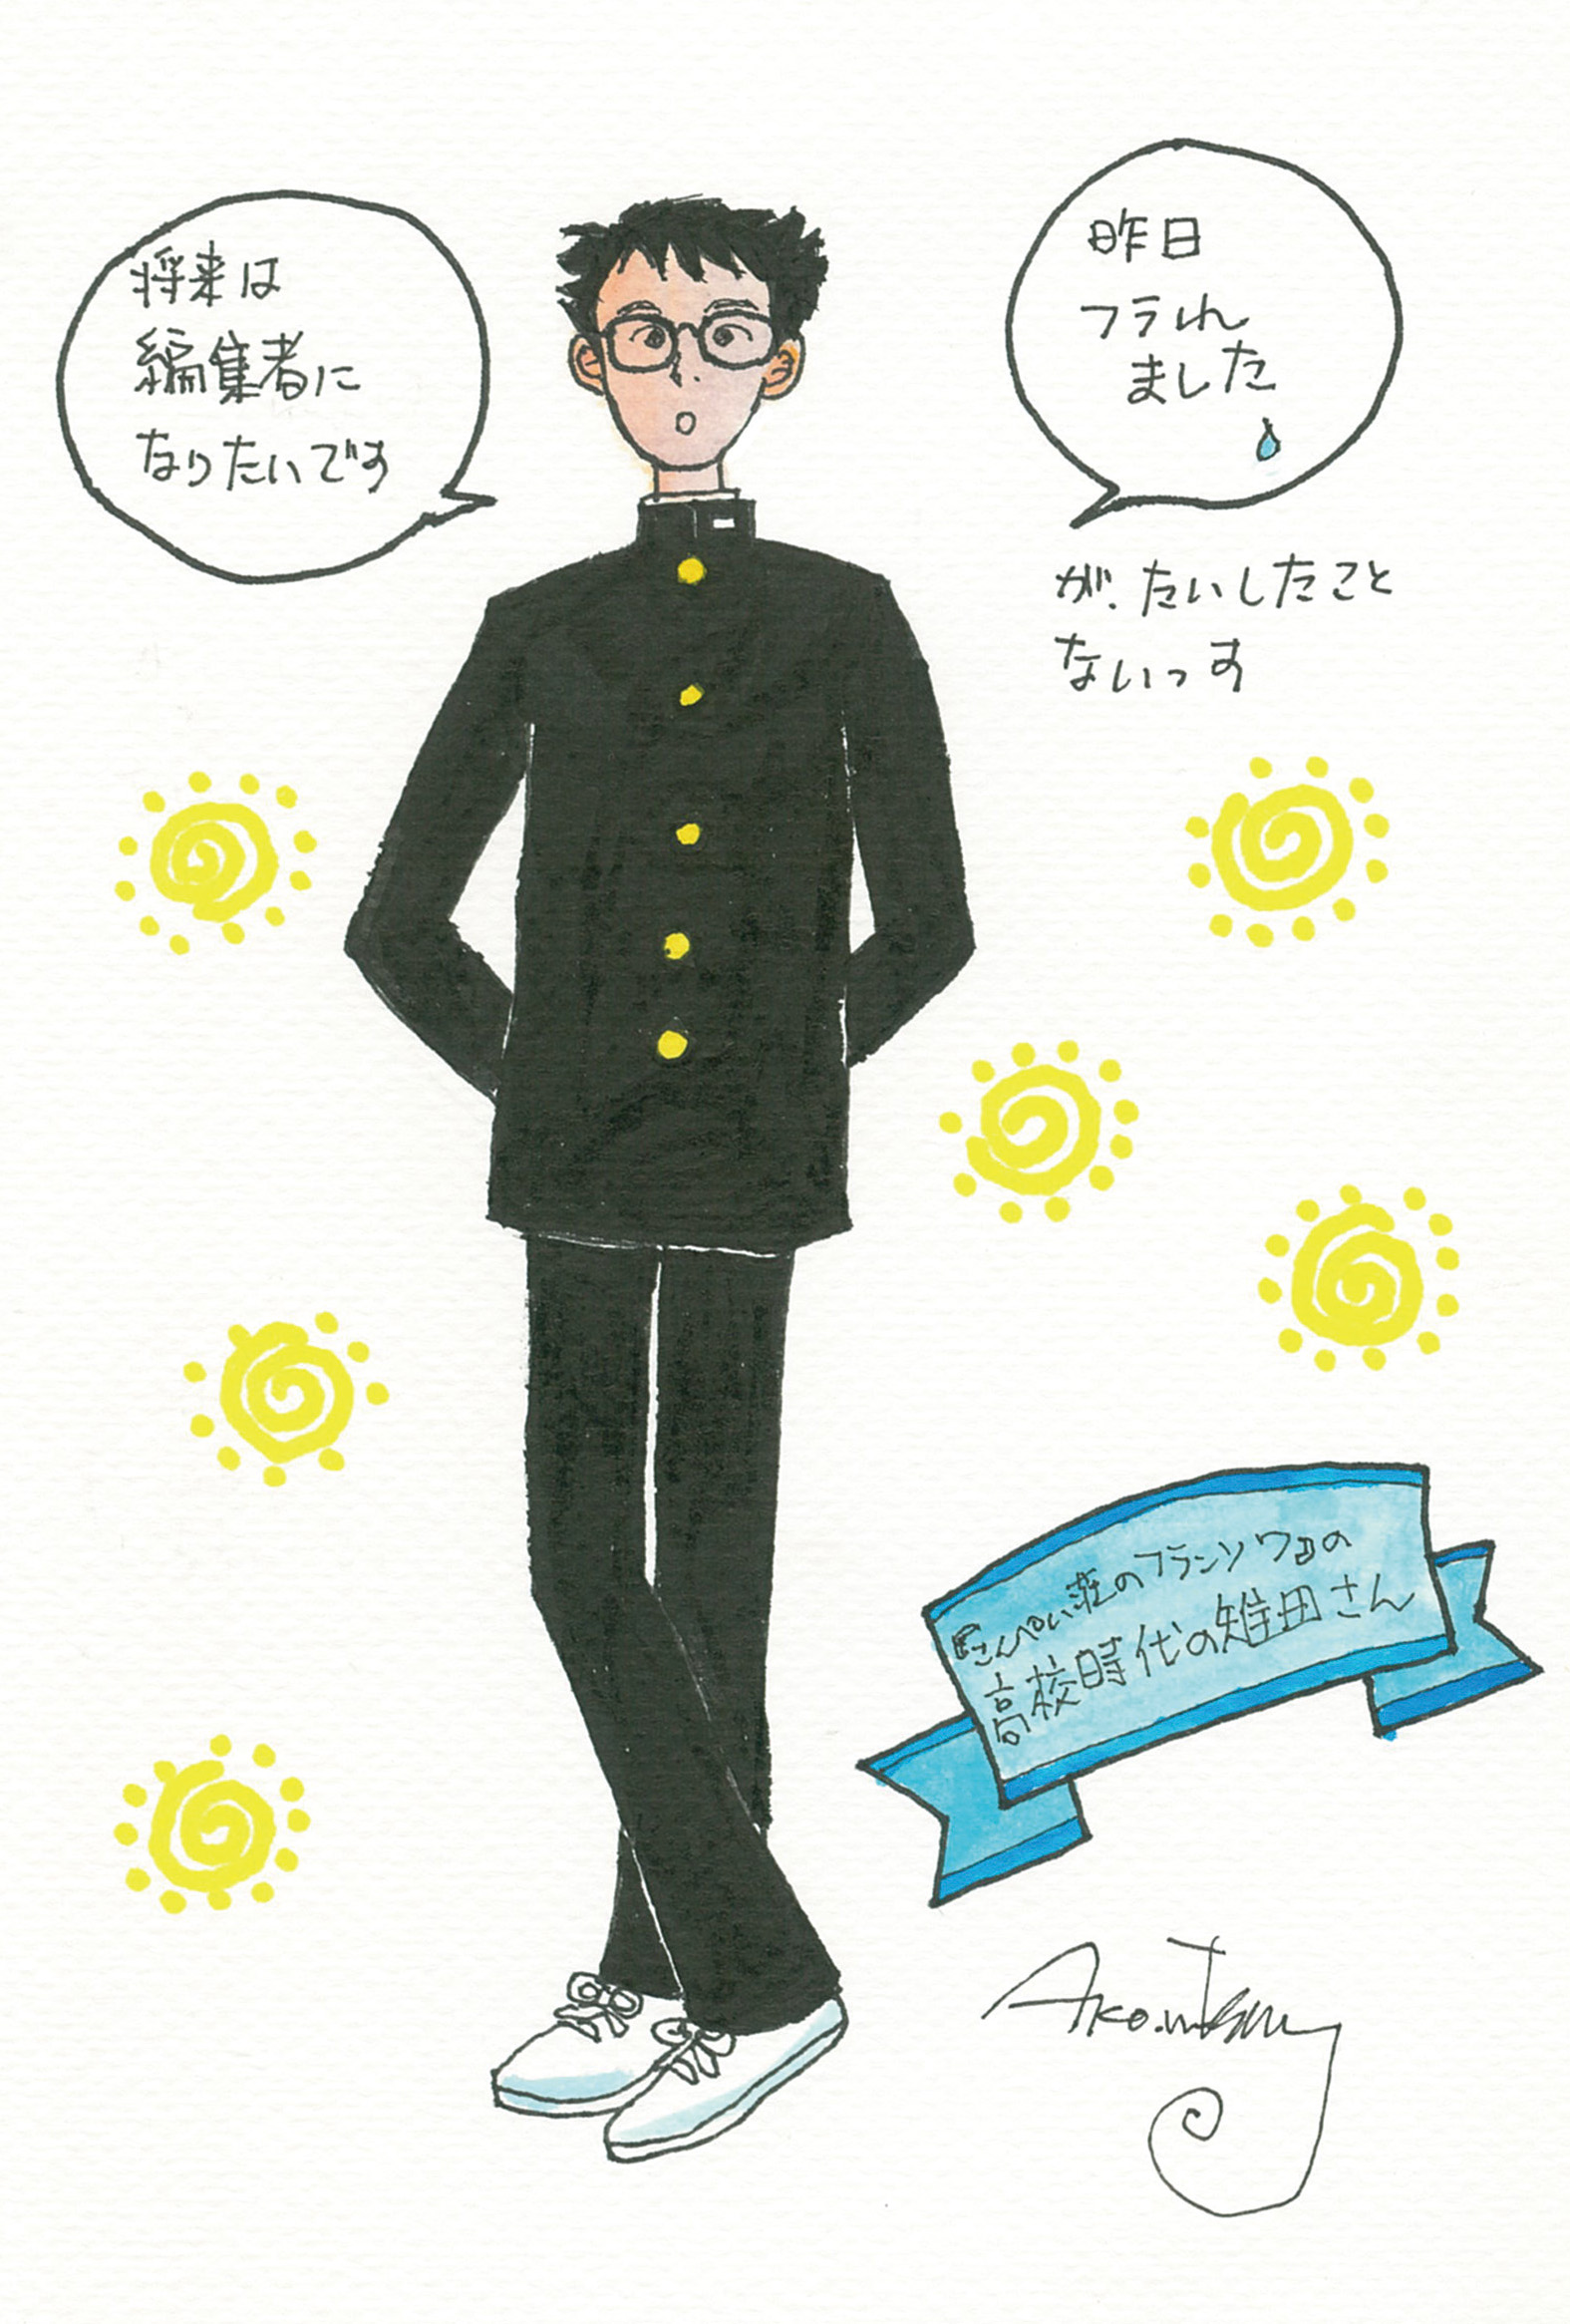 将来は
編集者に
なりたいです
昨日
フラれ
ました
が、たいしたこと
ないっす
『こんぺい荘のフランソワ』の
高校時代の雉田さん